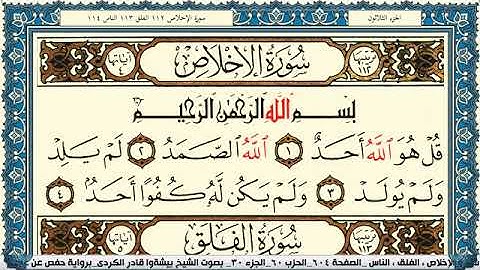 الجزء الثلاثون
سورة الإخلاص ١١٢ الفلق ١١٣ الناس ١١٤
سُورَةُ الإِخْلَاصِ
بِسْمِ اللَّهِ الرَّحْمَٰنِ الرَّحِيمِ
قُلْ هُوَ اللَّهُ أَحَدٌ ١ اللَّهُ الصَّمَدُ ٢ لَمْ يَلِدْ
وَلَمْ يُولَدْ ٣ وَلَمْ يَكُن لَّهُ كُفُوًا أَحَدٌ ٤
سُورَةُ الْفَلَقِ
الإخلاص ، الفلق ، الناس _ الصفحة ٦٠٤_الحزب ٦٠_الجزء ٣٠_ بصوت الشيخ بيشةوا قادر الكردي_برواية حفص عن